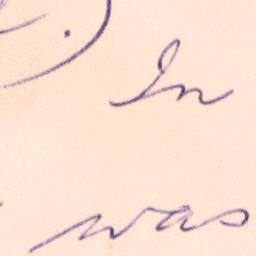 .) In
was